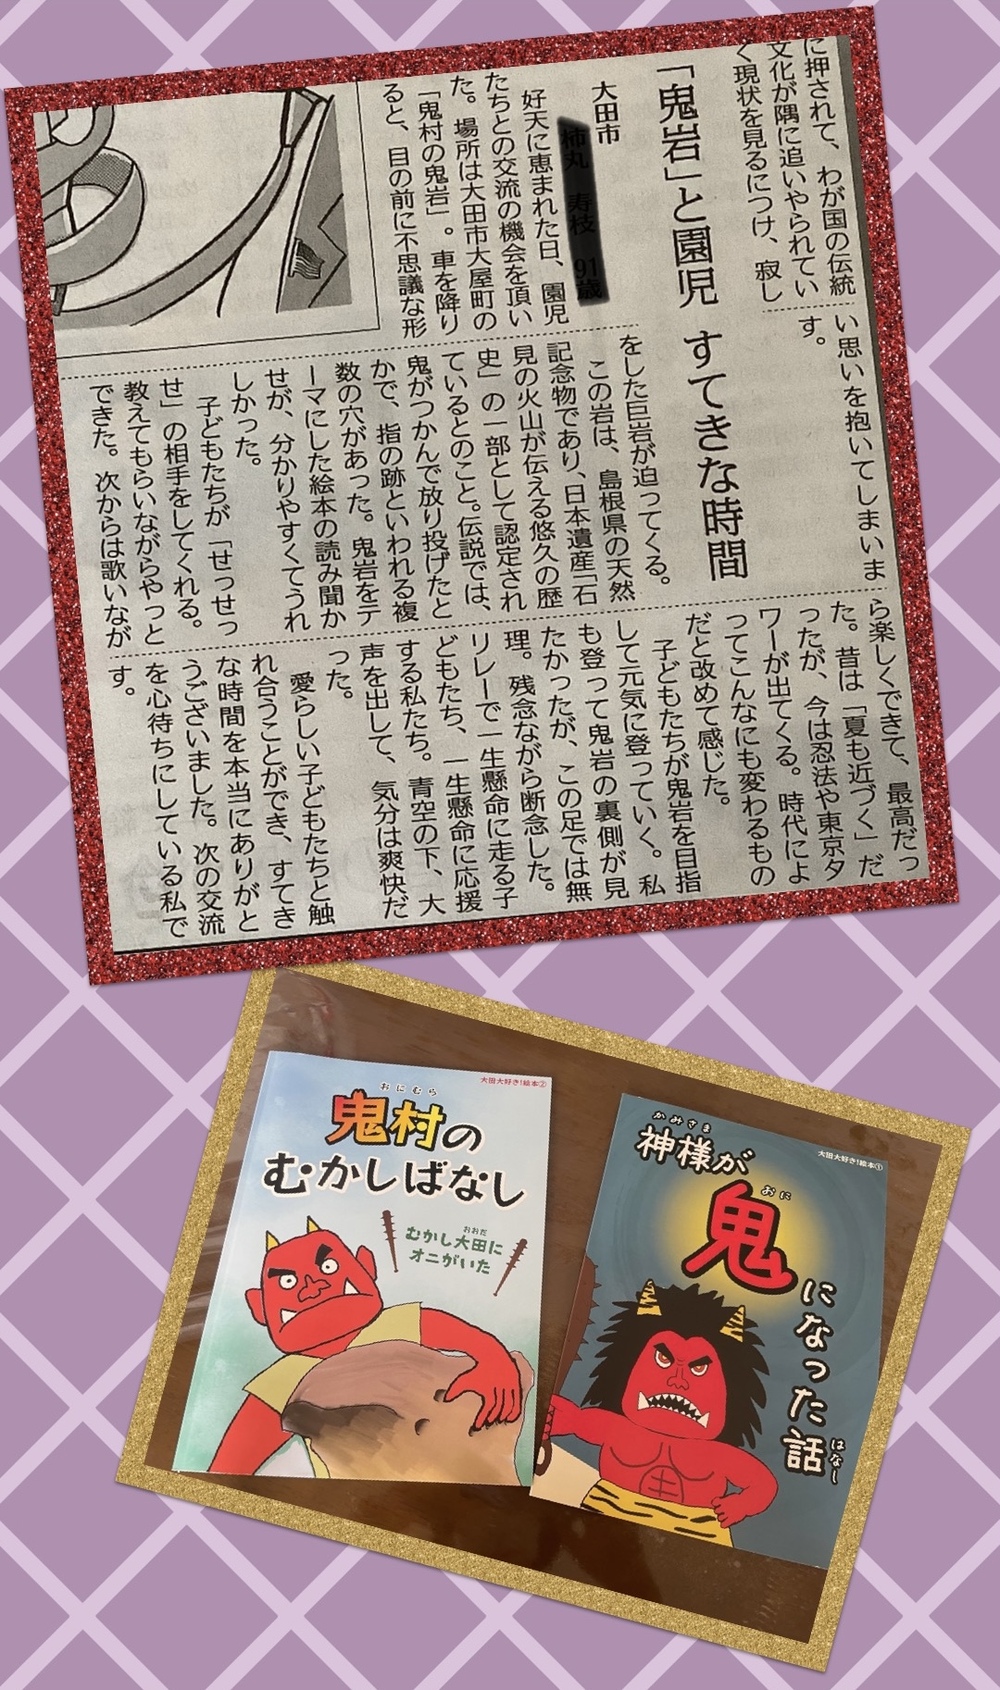 に押されて、わが国の伝統
文化が隅に追いやられてい
く現状を見るにつけ、寂し
い思いを抱いてしまいま
す。
「鬼岩」と園児 すてきな時間
大田市
好天に恵まれた日、園児
たちとの交流の機会を頂い
た。場所は大田市大屋町の
「鬼村の鬼岩」。車を降り
ると、目の前に不思議な形
をした巨岩が迫ってくる。
この岩は、島根県の天然
記念物であり、日本遺産「石
見の火山が伝える悠久の歴
史」の一部として認定され
ているとのこと。伝説では、
鬼がつかんで放り投げたと
かで、指の跡といわれる複
数の穴があった。鬼岩をテ
ーマにした絵本の読み聞か
せが、分かりやすくてうれ
しかった。
子どもたちが「せっせっ
せ」の相手をしてくれる。
教えてもらいながらやっと
できた。次からは歌いなが
ら楽しくできて、最高だっ
た。昔は「夏も近づく」だ
ったが、今は忍法や東京タ
ワーが出てくる。時代によ
ってこんなにも変わるもの
だと改めて感じた。
子どもたちが鬼岩を目指
して元気に登っていく。私
も登って鬼岩の裏側が見
たかったが、この足では無
理。残念ながら断念した。
リレーで一生懸命に走る子
どもたち、一生懸命に応援
する私たち。青空の下、大
声を出して、気分は爽快だ
った。
愛らしい子どもたちと触
れ合うことができ、すてき
な時間を本当にありがと
うございました。次の交流
を心待ちにしている私で
す。
大田大好き!絵本②
おにむら
鬼村の
むかしばなし
おおだ
むかし大田に
オニがいた
大田大好き!絵本①
かみさま
神様が
おに
鬼
になった話
はなし